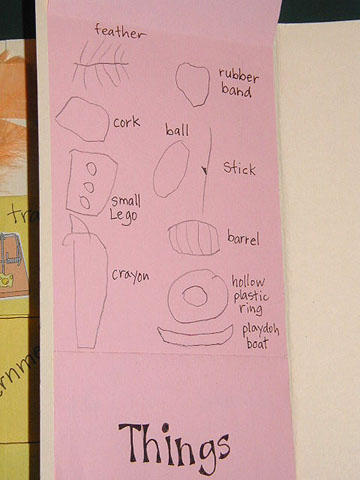 feather
rubber
band
cork
ball
stick
small
Lego
barrel
crayon
hollow
plastic
ring
playdoh
boat
Things
tra